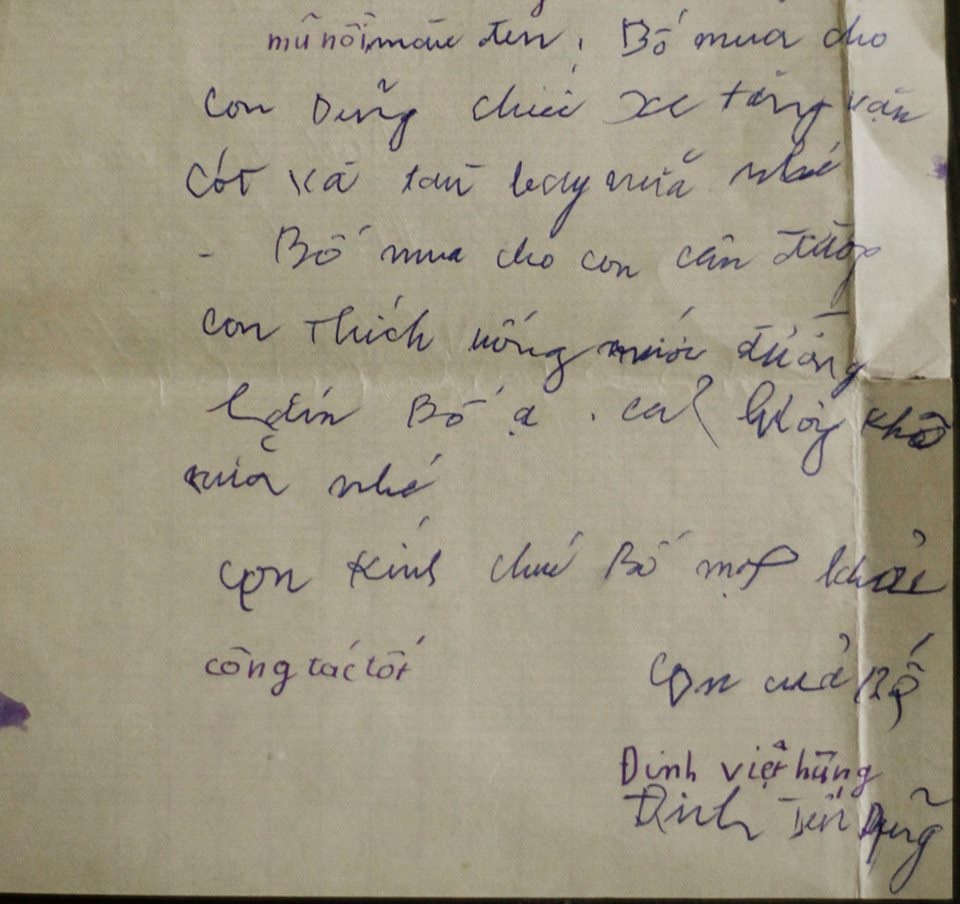 mũ nồi màu đen, Bố mua cho
con Dũng chiếc xe tăng vặn
cót và tàu bay nữa nhé
- Bố mua cho con cân đường
con thích uống nước đường
lắm Bố ạ. cả khô
nữa nhé
con kính chúc Bố mạnh khỏe
công tác tốt
con của Bố
Đinh việt hùng
Đinh Tiến Dũng